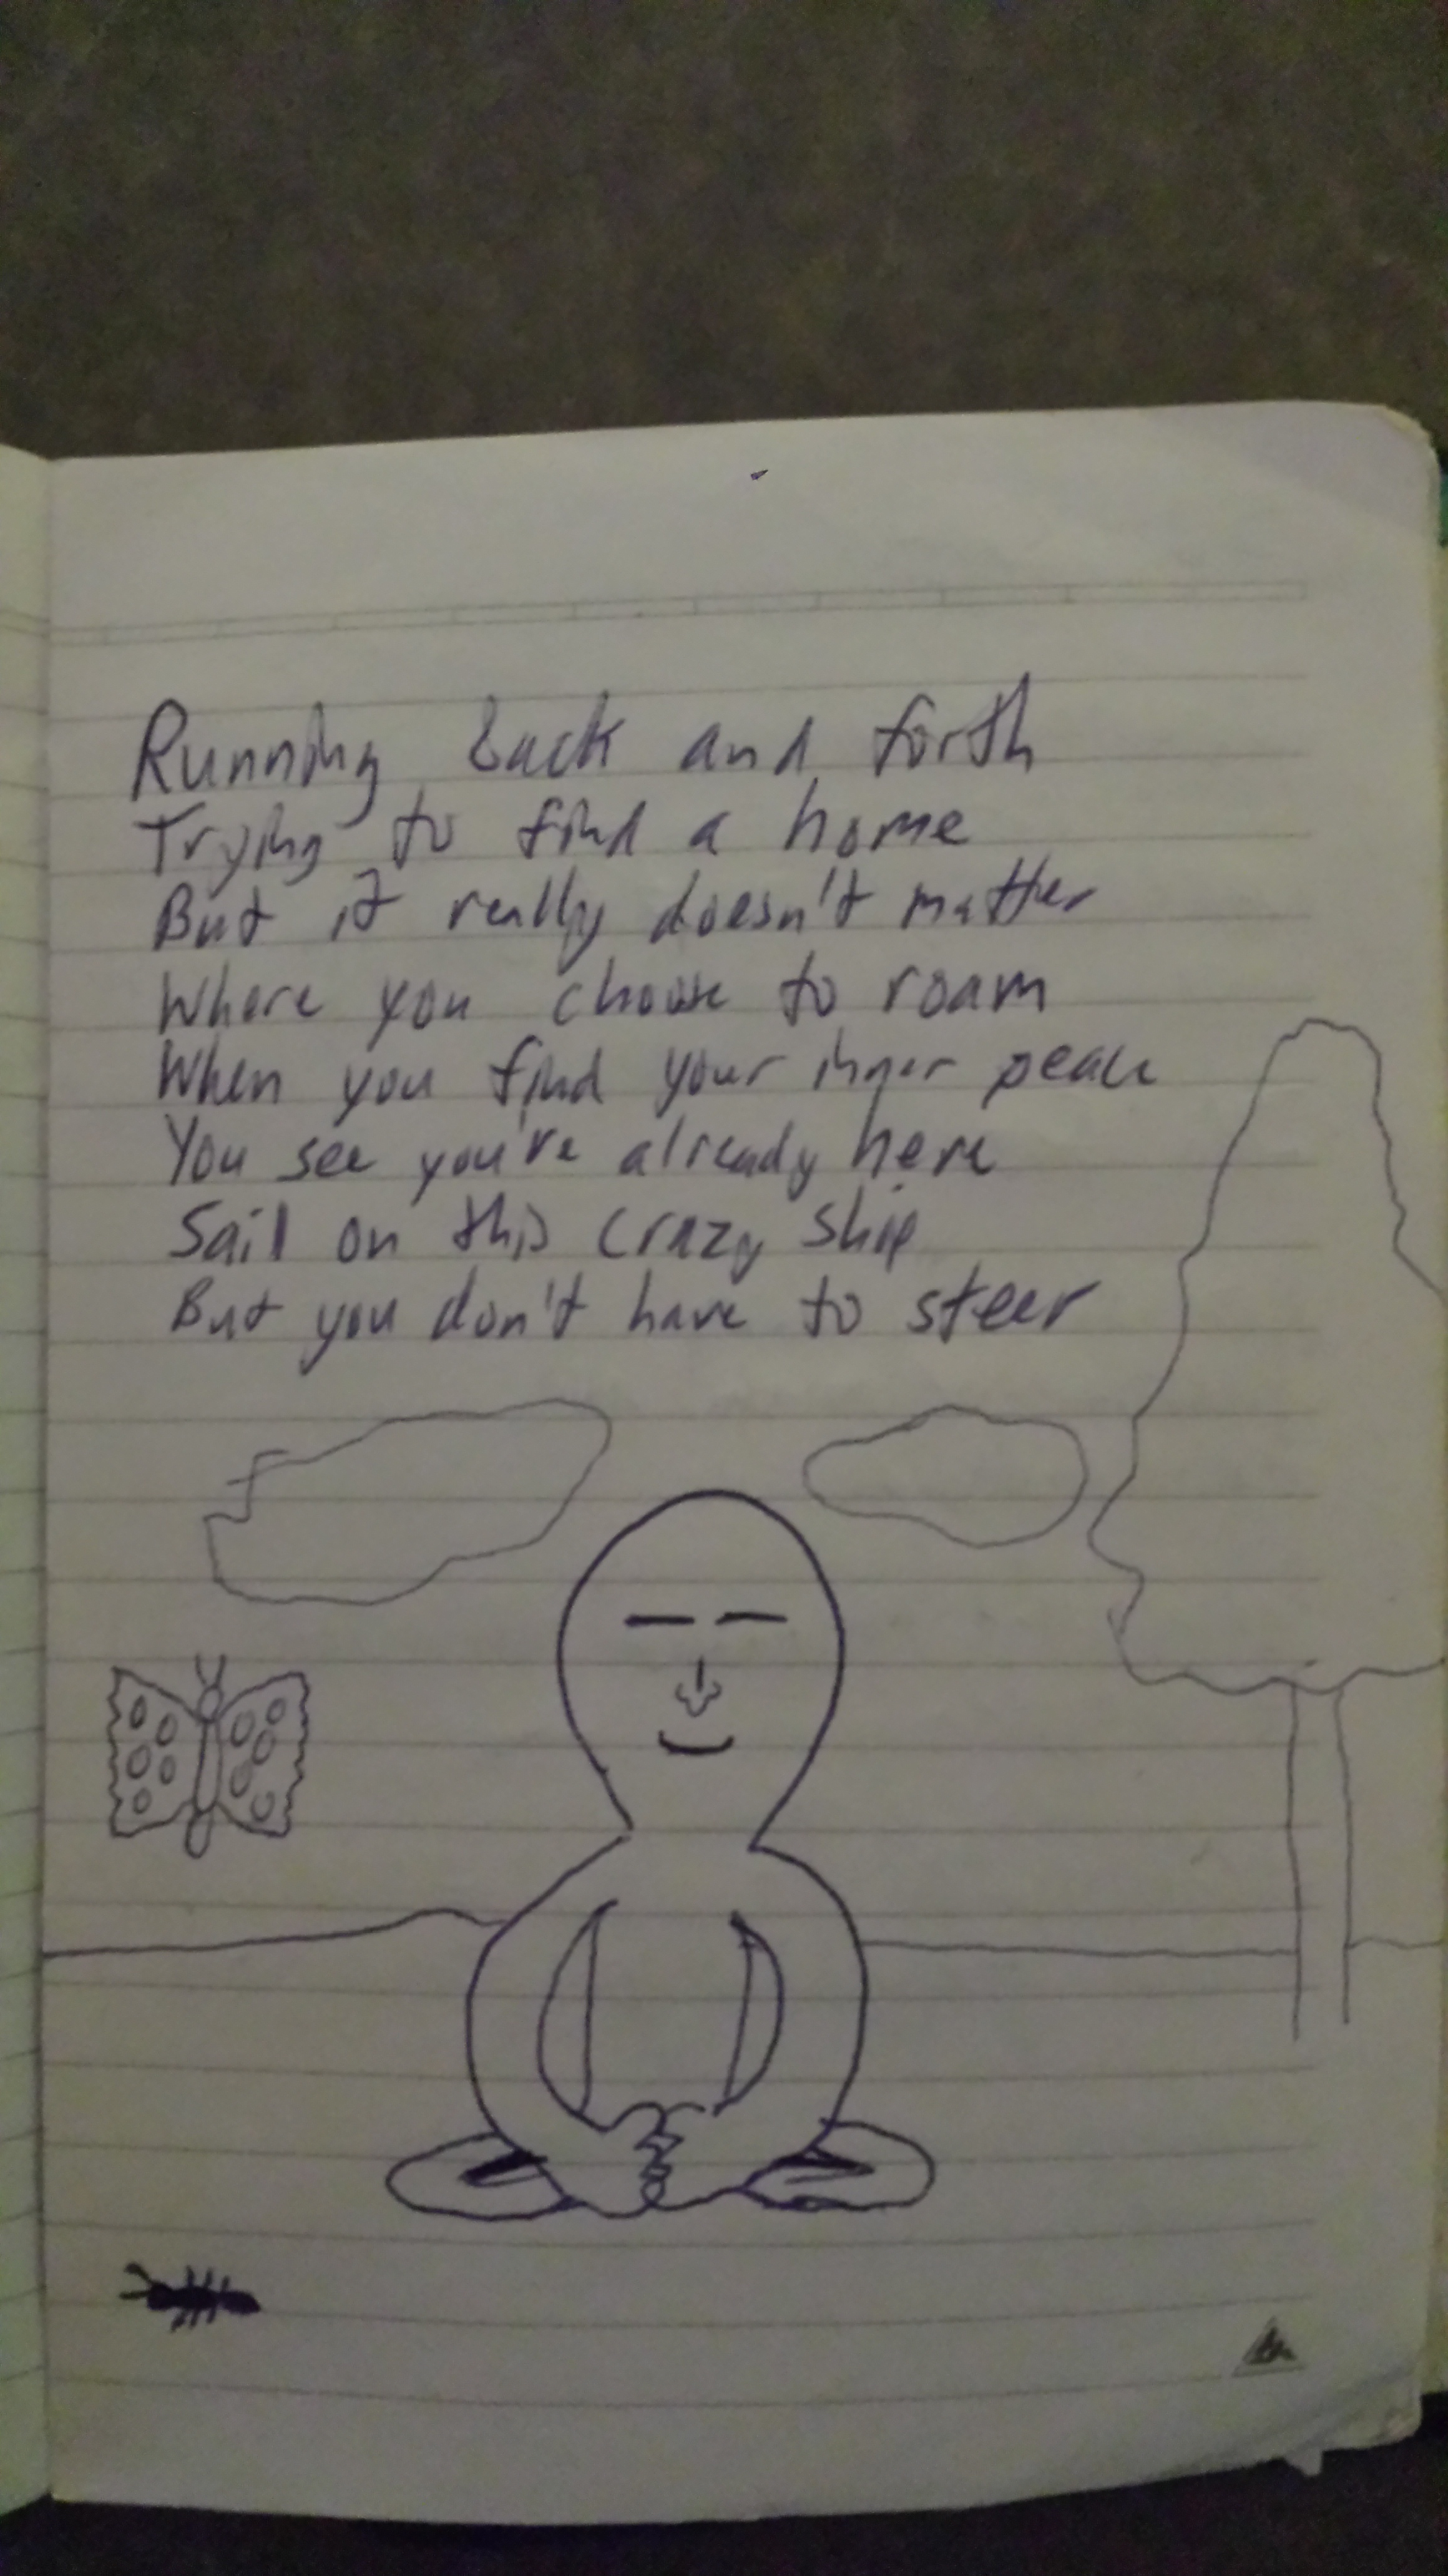 Running back and forth
Trying to find a home
But it really doesn't matter
Where you choose to roam
When you find your inner peace
You see you're already here
Sail on this crazy ship
But you don't have to steer